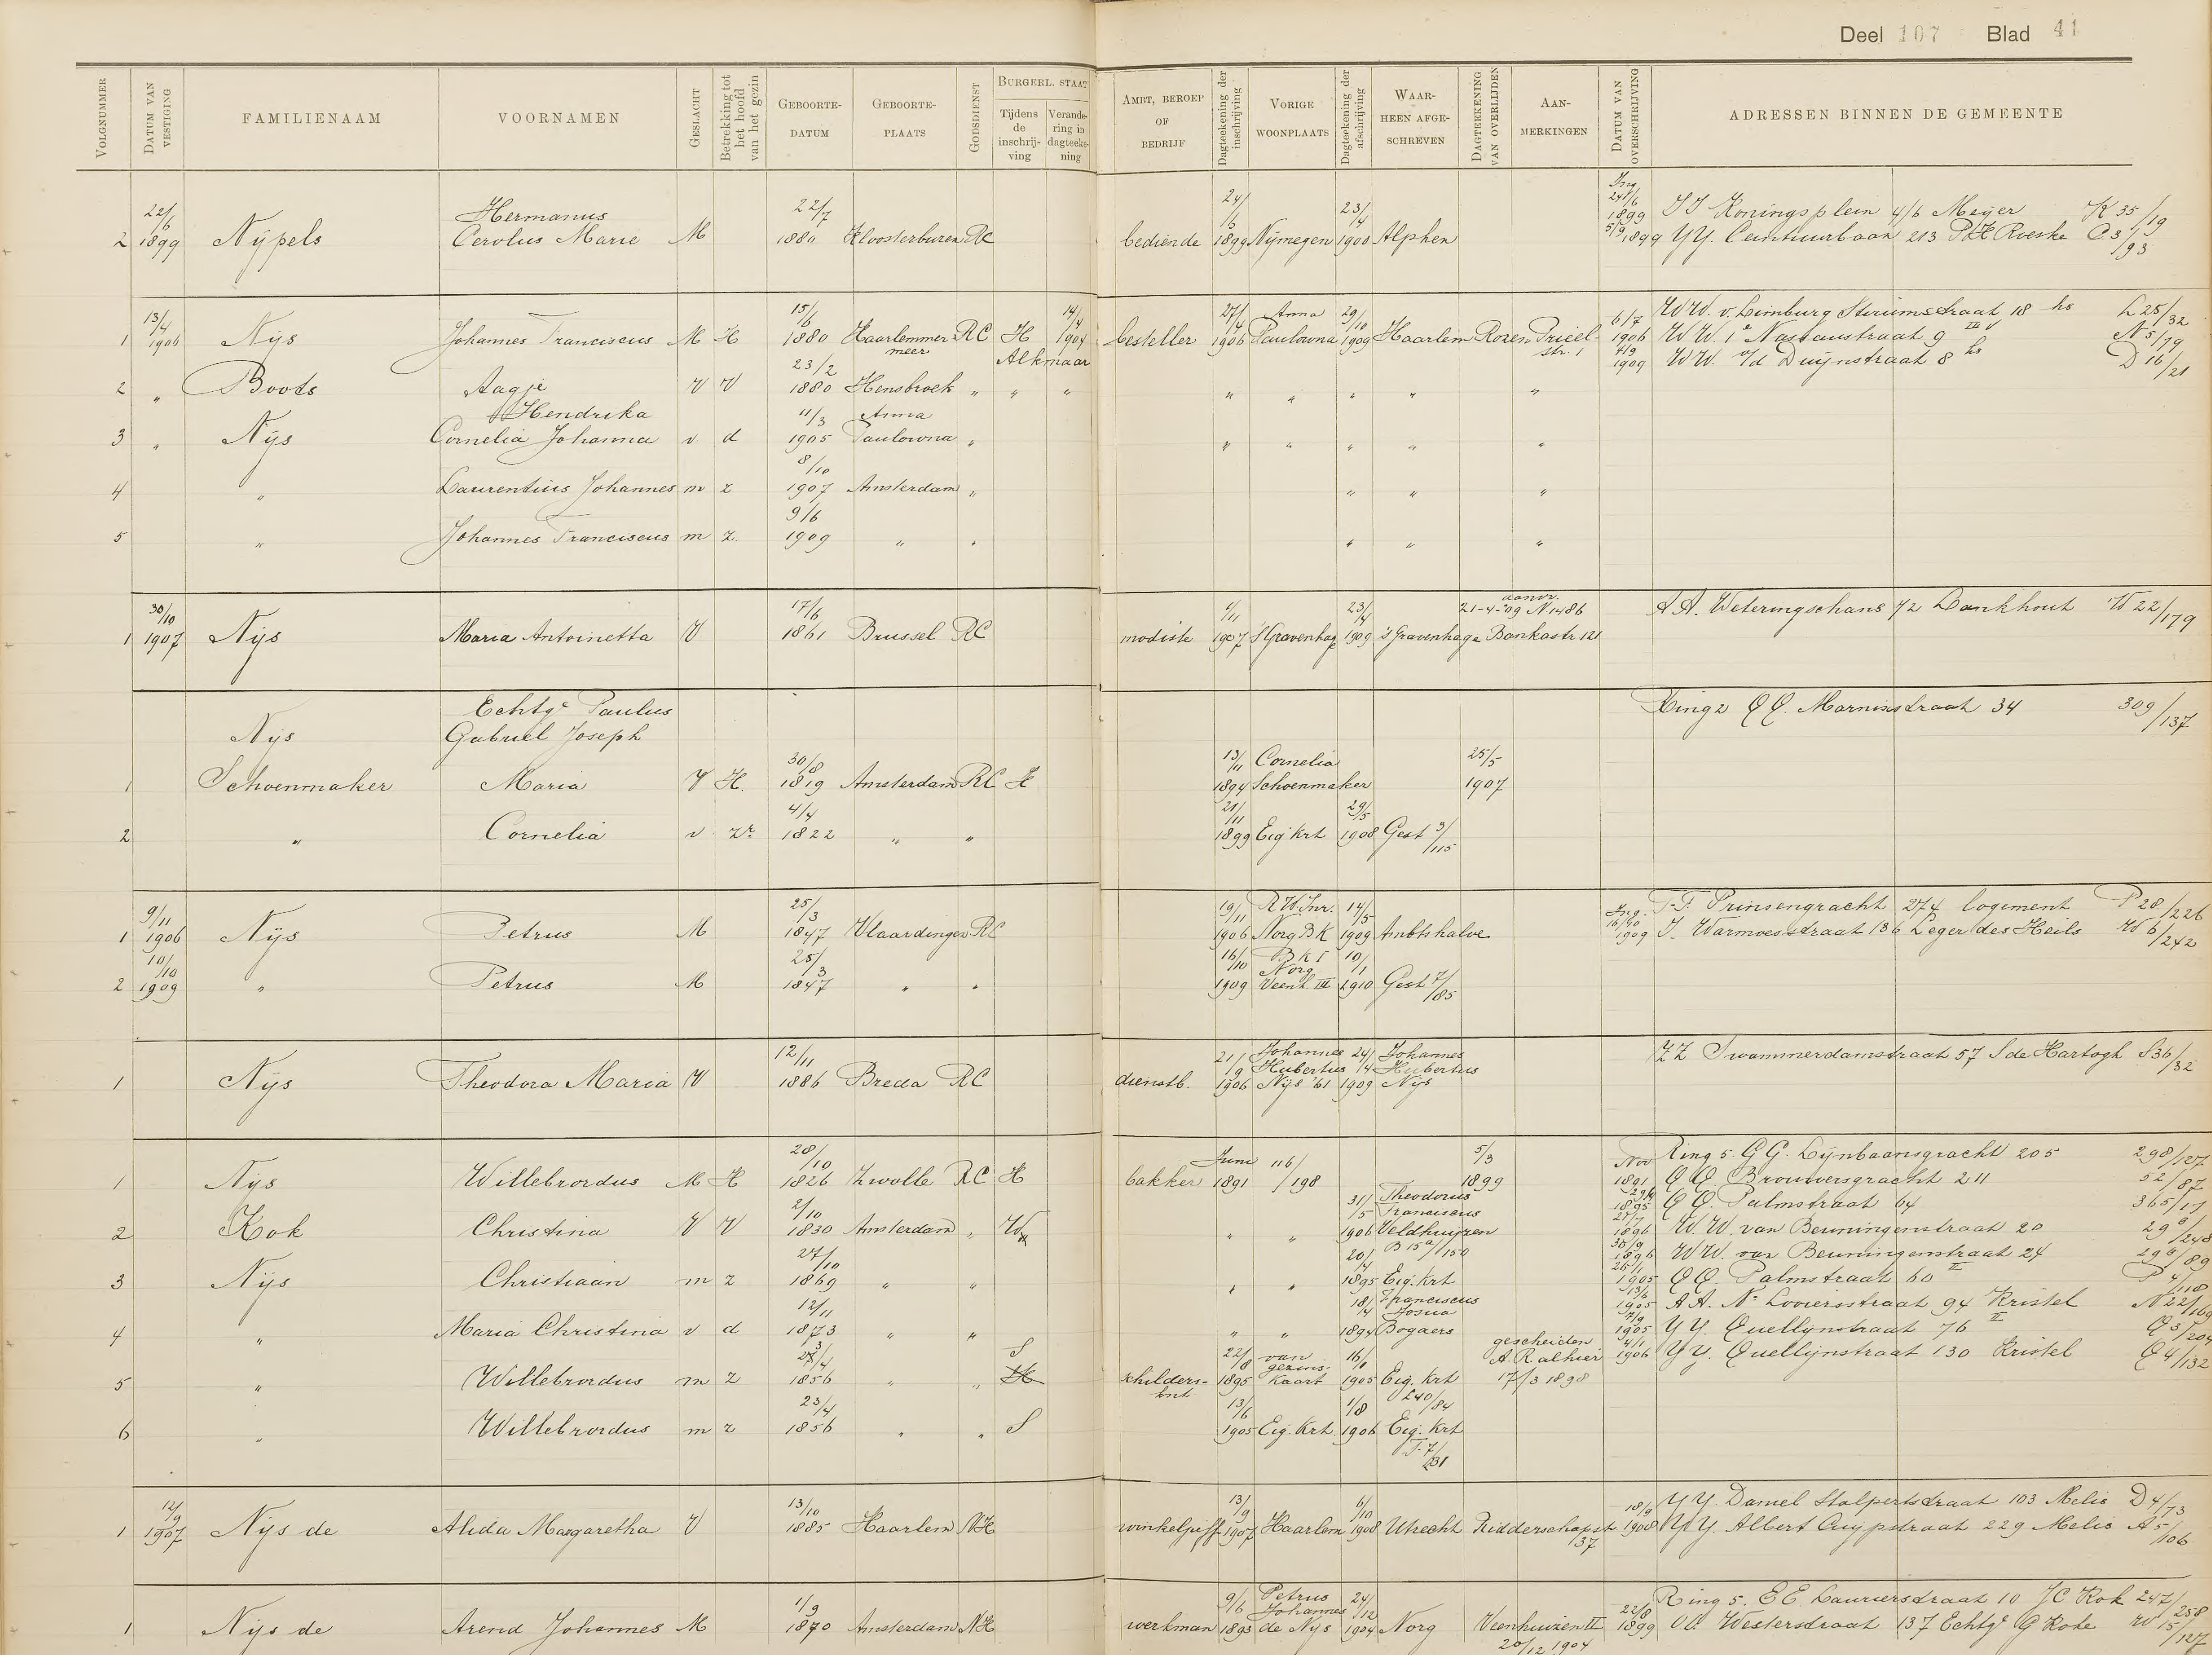 Deel 107 Blad 41
VOLGNUMMER
DATUM VAN VESTIGING
FAMILIENAAM
VOORNAMEN
GESLACHT
Betrekking tot het hoofd van het gezin
GEBOORTE-DATUM
GEBOORTE-PLAATS
GODSDIENST
BURGERL. STAAT
Tijdens de inschrijving
Verandering in dagteekening
AMBT, BEROEP OF BEDRIJF
Dagteekening der inschrijving
VORIGE WOONPLAATS
Dagteekening der afschrijving
WAARHEEN AFGESCHREVEN
DAGTEEKENING VAN OVERLIJDEN
AANMERKINGEN
DATUM VAN OVERSCHRIJVING
ADRESSEN BINNEN DE GEMEENTE
2 22/6 1899 Nijpels Hermanus Cerolus Marie M 22/7 1880 Kloosterburen RC bediende 24/6 1899 Nijmegen 23/4 1900 Alphen
Ing 24/6 1899 JJ Koningsplein 4/6 Meijer K 35/19
5/9 1899 YY. Ceintuurbaan 213 PH Roeske C 3/93
1 13/4 1906 Nijs Johannes Franciscus M H 15/6 1880 Haarlemmermeer RC H 14/4 1904 Alkmaar besteller 27/4 1906 Anna Paulowna 29/10 1909 Haarlem Rozen Prieelstr. 1
WW. v. Limburg Stirumstraat 18 hs L 25/32
6/7 1906 WW. 1e Nassaustraat 9 III v N 5/79
4/9 1909 WW. v/d Duijnstraat 8 hs D 16/21
2 " Boots Aagje V V 23/2 1880 Hensbroek " " " " " " " "
3 " Nijs Hendrika Cornelia Johanna v d 11/3 1905 Anna Paulowna " " " " " "
4 " Laurentius Johannes m z 8/10 1907 Amsterdam " " " "
5 " Johannes Franciscus m z 9/6 1909 " " " " "
1 30/10 1907 Nijs Maria Antoinetta V 17/6 1861 Brussel RC modiste 1/11 1907 's Gravenhage 23/4 1909 's Gravenhage aanvr. 21-4-'09 N 1486 Bankastr 121
AA. Weteringschans 72 Bankhout W 22/179
Nijs Echtge Paulus Gabriel Joseph
Ring 2 QQ. Marnixstraat 34 309/137
1 Schoenmaker Maria V H. 30/8 1819 Amsterdam RC H 13/11 1894 Cornelia Schoenmaker 25/5 1907
2 " Cornelia v zr 4/4 1822 " " 21/11 1899 Eig krt 29/5 1908 Gest 3/115
1 9/11 1906 Nijs Petrus M 25/3 1847 Vlaardingen RC 19/11 1906 R.W.Inr. Norg BK 14/5 1909 Ambtshalve
FF Prinsengracht 274 logement P 28/226
Ing. 16/10 1909 J. Warmoesstraat 136 Leger des Heils W 6/242
2 10/10 1909 " Petrus M 25/3 1847 " " 16/10 1909 BKI Norg Veenh. III 10/1 1910 Gest 7/85
1 Nijs Theodora Maria V 12/11 1886 Breda RC dienstb. 21/9 1906 Johannes Hubertus Nijs '61 24/4 1909 Johannes Hubertus Nijs
ZZ Swammerdamstraat 57 S de Hartogh S 36/32
1 Nijs Willebrordus M H 28/10 1826 Zwolle RC H bakker Juni 1891 116/198 5/3 1899
Ring 5. GG. Lijnbaansgracht 205 298/127
Nov 1891 QQ. Brouwersgracht 211 52/87
29/4 1895 QQ. Palmstraat 64 365/17
27/7 1896 WW. van Beuningenstraat 20 29a/248
30/9 1896 WW. van Beuningenstraat 24 29a/89
26/1 1905 QQ. Palmstraat 60 II P 4/118
13/6 1905 AA. Nr Looiersstraat 94 Kristel N 22/169
7/9 1905 YY Quellijnstraat 76 II Q 3/204
4/1 1906 YY. Quellijnstraat 130 Kristel Q 4/132
2 Kok Christina V V 2/10 1830 Amsterdam " W " " 31/5 1906 Theodorus Franciscus Veldhuijzen B 15a/150
3 Nijs Christiaan m z 27/10 1869 " " " " 20/4 1895 Eig. Krt
4 " Maria Christina v d 12/11 1873 " " " " 18/4 1894 Franciscus Josua Bogaers
5 " Willebrordus m z 23/4 1856 " " S H schilderskn. 22/8 1895 van gezinskaart 16/1 1905 Eig. Krt L 40/84 gescheiden A Ralhier 17/3 1898
6 " Willebrordus m z 23/4 1856 " " S 13/6 1905 Eig. Krt. 1/8 1906 Eig. Krt T 7/231
1 12/9 1907 Nijs de Alida Margaretha V 13/10 1885 Haarlem NH winkeljuff 13/9 1907 Haarlem 6/10 1908 Utrecht Ridderschapst 137
YY. Daniël Stalpertstraat 103 Melis D 4/73
18/9 1908 YY. Albert Cuypstraat 229 Melis A 5/106
1 Nijs de Arend Johannes M 1/9 1870 Amsterdam NH werkman 9/6 1893 Petrus Johannes de Nijs 24/12 1904 Norg Veenhuizen II 20/12 1904
Ring 5. EE. Laurierstraat 10 JC Kok 247/258
22/8 1899 UU Westerstraat 137 Echtge G Kote W 15/127